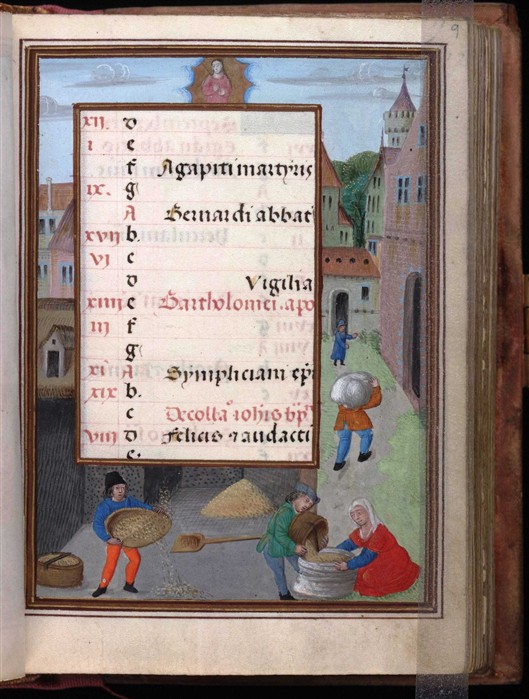 9
xii d
i e
f Agapiti martyris
ix. g
A Bernardi abbat
xvii b.
vi c
d Vigilia
xiiii e Bartholomei. apo
iii f
g
xi A Symphciani ep̄i
xix b.
c Decolla° iohis bp̄t
viii d felicis ⁊ audacti
e.